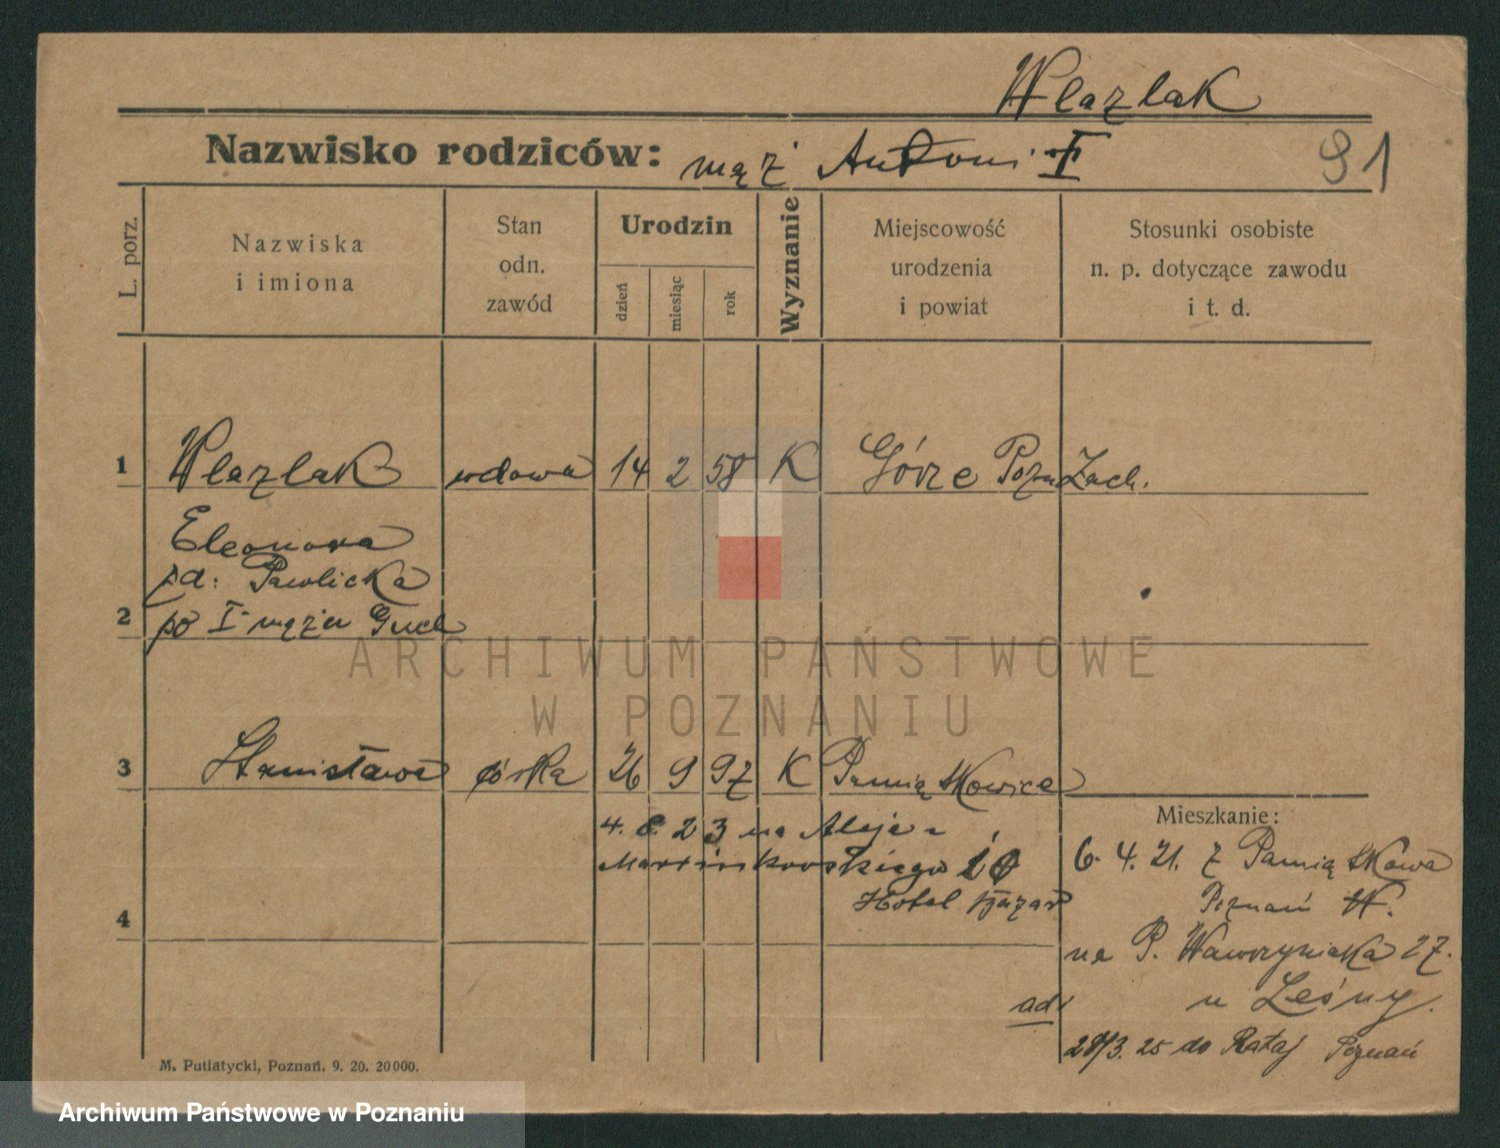 Wlazlak
Nazwisko rodziców: mąż Antoni I
91
L. porz.
Nazwiska i imiona
Stan odn. zawód
Urodzin
dzień
miesiąc
rok
Wyznanie
Miejscowość urodzenia i powiat
Stosunki osobiste n. p. dotyczące zawodu i t. d.
1 Wlazlak wdowa 14 2 58 K Górze Pozn Zach.
Eleonora
zd: Pawlicka
2 po I męża Guck
ARCHIWUM PAŃSTWOWE
W POZNANIU
3 Stanisława córka 26 9 97 K Pamiątkowice
Mieszkanie:
4. 8. 23 na Aleje
Marcinkowskiego 10
Hotel Bazar
4
6. 4. 21. z Pamiątkowa
Poznań W.
na P. Wawrzyniaka 27.
u Leśny.
ad
28/3. 25 do Rataj Poznań
M. Putiatycki, Poznań. 9. 20. 20000.
Archiwum Państwowe w Poznaniu